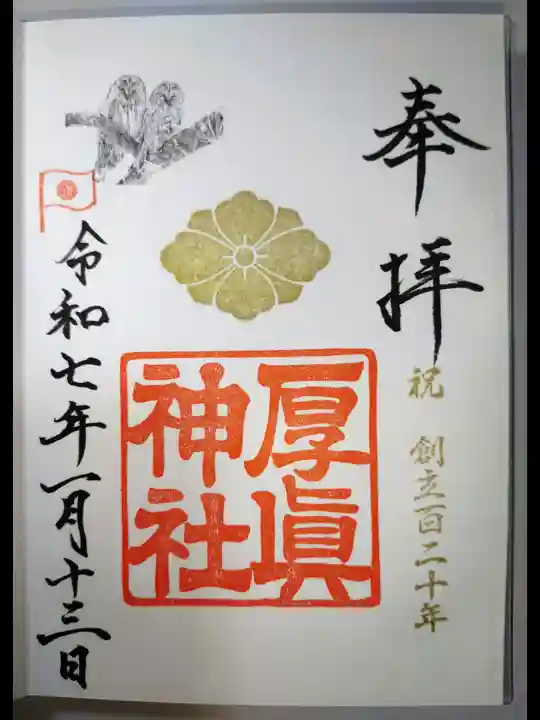 奉拝
祝 創立百二十年
厚眞
神社
令和七年一月十三日